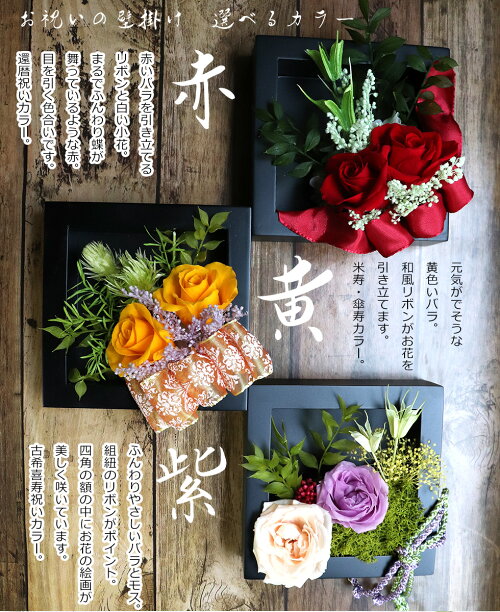 お祝いの壁掛け　選べるカラー
赤
赤いバラを引き立てる
リボンと白い小花。
まるでふんわり蝶が
舞っているような赤。
目を引く色合いです。
還暦祝いカラー。
黄
元気がでそうな
黄色いバラ。
和風リボンがお花を
引き立てます。
米寿・傘寿カラー。
紫
ふんわりやさしいバラとモス。
組紐のリボンがポイント。
四角の額の中にお花の絵画が
美しく咲いています。
古希喜寿祝いカラー。